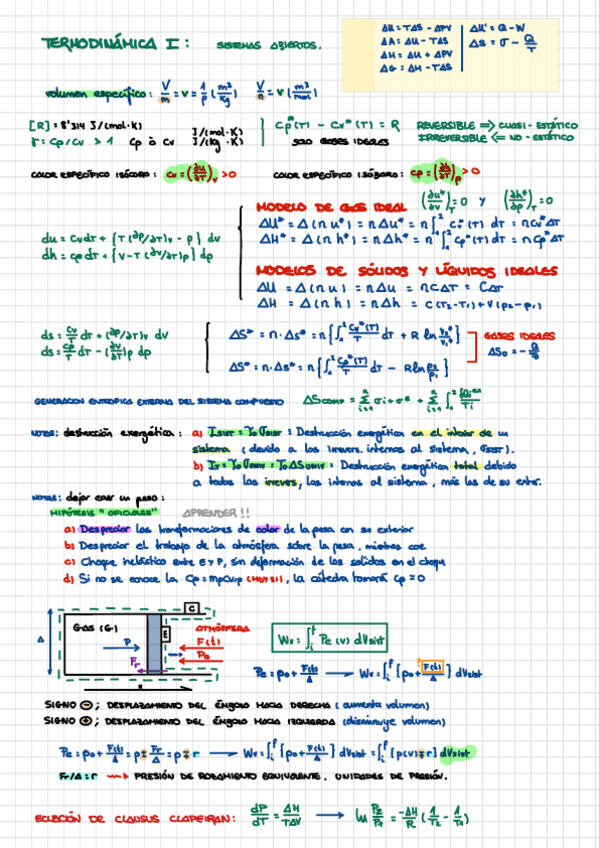 TERMODINÁMICA I: SISTEMAS ABIERTOS.
ΔU = TΔS - ΔPV
ΔA = ΔU - TΔS
ΔH = ΔU + ΔPV
ΔG = ΔH - TΔS
ΔU = Q - W
ΔS = σ - Q/T
volumen específico: V/m = v = 1/ρ (m³/kg) V/n = v (m³/mol)
[R] = 8'314 J/(mol·K)
γ = Cp/Cv > 1 Cp ó Cv J/(mol·K) J/(kg·K)
Cp*(T) - Cv*(T) = R
SOLO GASES IDEALES
REVERSIBLE => CUASI-ESTÁTICO
IRREVERSIBLE <= NO-ESTÁTICO
CALOR ESPECÍFICO ISÓCORO: Cv = (∂u/∂T)v > 0 CALOR ESPECÍFICO ISÓBARO: Cp = (∂h/∂T)p > 0
MODELO DE GAS IDEAL (∂u*/∂v)T = 0 y (∂h*/∂p)T = 0
ΔU* = Δ(n u*) = nΔu* = n∫₁² Cv*(T) dT = nCv*ΔT
ΔH* = Δ(n h*) = nΔh* = n∫₁² Cp*(T) dT = nCp*ΔT
du = CvdT + [T(∂p/∂T)v - p] dv
dh = cpdT + [v - T(∂v/∂T)p] dp
MODELOS DE SÓLIDOS Y LÍQUIDOS IDEALES
ΔU = Δ(nu) = nΔu = ncΔT = CΔT
ΔH = Δ(nh) = nΔh = C(T₂-T₁) + V(p₂-p₁)
ds = Cv/T dT + (∂p/∂T)v dv
ds = Cp/T dT - (∂v/∂T)p dp
ΔS* = n·Δs* = n[∫₁² Cv*(T)/T dT + R ln v₂/v₁]
ΔS* = n·Δs* = n[∫₁² Cp*(T)/T dT - R ln p₂/p₁]
GASES IDEALES
GENERACION ENTROPICA EXTERNA DEL SISTEMA COMPUESTO
NOTAS: destrucción exergética: a) = Destrucción exergética en el interior de un
sistema (debido a las irrevers. internas al sistema,
b) = Destrucción exergética total debido
a todas las irrevers, las internas al sistema, más las de su entor.
NOTAS: dejar caer un peso:
HIPÓTESIS "OFICIALES" APRENDER!!
a) Despreciar las transformaciones de calor de la pesa con su exterior
b) Despreciar el trabajo de la atmósfera sobre la pesa, mientras cae
c) Choque inelástico entre E y P, sin deformación de los sólidos en el choque
d) Si no se conoce la la cátedra tomará Cp = 0
GAS (G)
P
E
C
Fr
ATMÓSFERA
F(t)
P₀
x
SIGNO ⊖; DESPLAZAMIENTO DEL ÉMBOLO HACIA DERECHA (aumenta volumen)
SIGNO ⊕; DESPLAZAMIENTO DEL ÉMBOLO HACIA IZQUIERDA (disminuye volumen)
Fr/A = r PRESIÓN DE ROZAMIENTO EQUIVALENTE. UNIDADES DE PRESIÓN.
ECUACIÓN DE CLAUSUS CLAPEIRAN: dP/dT = ΔH/TΔV → ln P₂/P₁ = -ΔH/R (1/T₂ - 1/T₁)